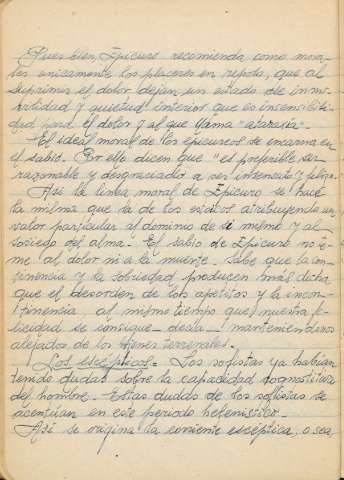 Pues bien, Epicuro recomienda como mora-
les unicamente los placeres en reposo, que al
suprimir el dolor dejan un estado de inmo-
vilidad y quietud interior que es insensibili-
dad para el dolor y al que llama "ataraxia".
El ideal moral de los epicureos se encarna en
el sabio. Por ello dicen que "es preferible ser
razonable y desgraciado a ser insensato y feliz.
Asi la linea moral de Epicuro se hace
la misma que la de los estoicos atribuyendo un
valor particular al dominio de si mismo y al
sosiego del alma. El sabio de Epicuro no te-
me al dolor ni a la muerte. Sabe que la con-
tinencia y la sobriedad producen más dicha
que el desorden de los apetitos y la incon-
tinencia, al mismo tiempo que nuestra fe-
licidad se consigue - decia - manteniendonos
alejados de los bienes terrenales.
Los escépticos = Los sofistas ya habian
tenido dudas sobre la capacidad cognoscitiva
del hombre. Estas dudas de los sofistas se
acentúan en este periodo helenistico.
Asi se origina la corriente escéptica, o sea,